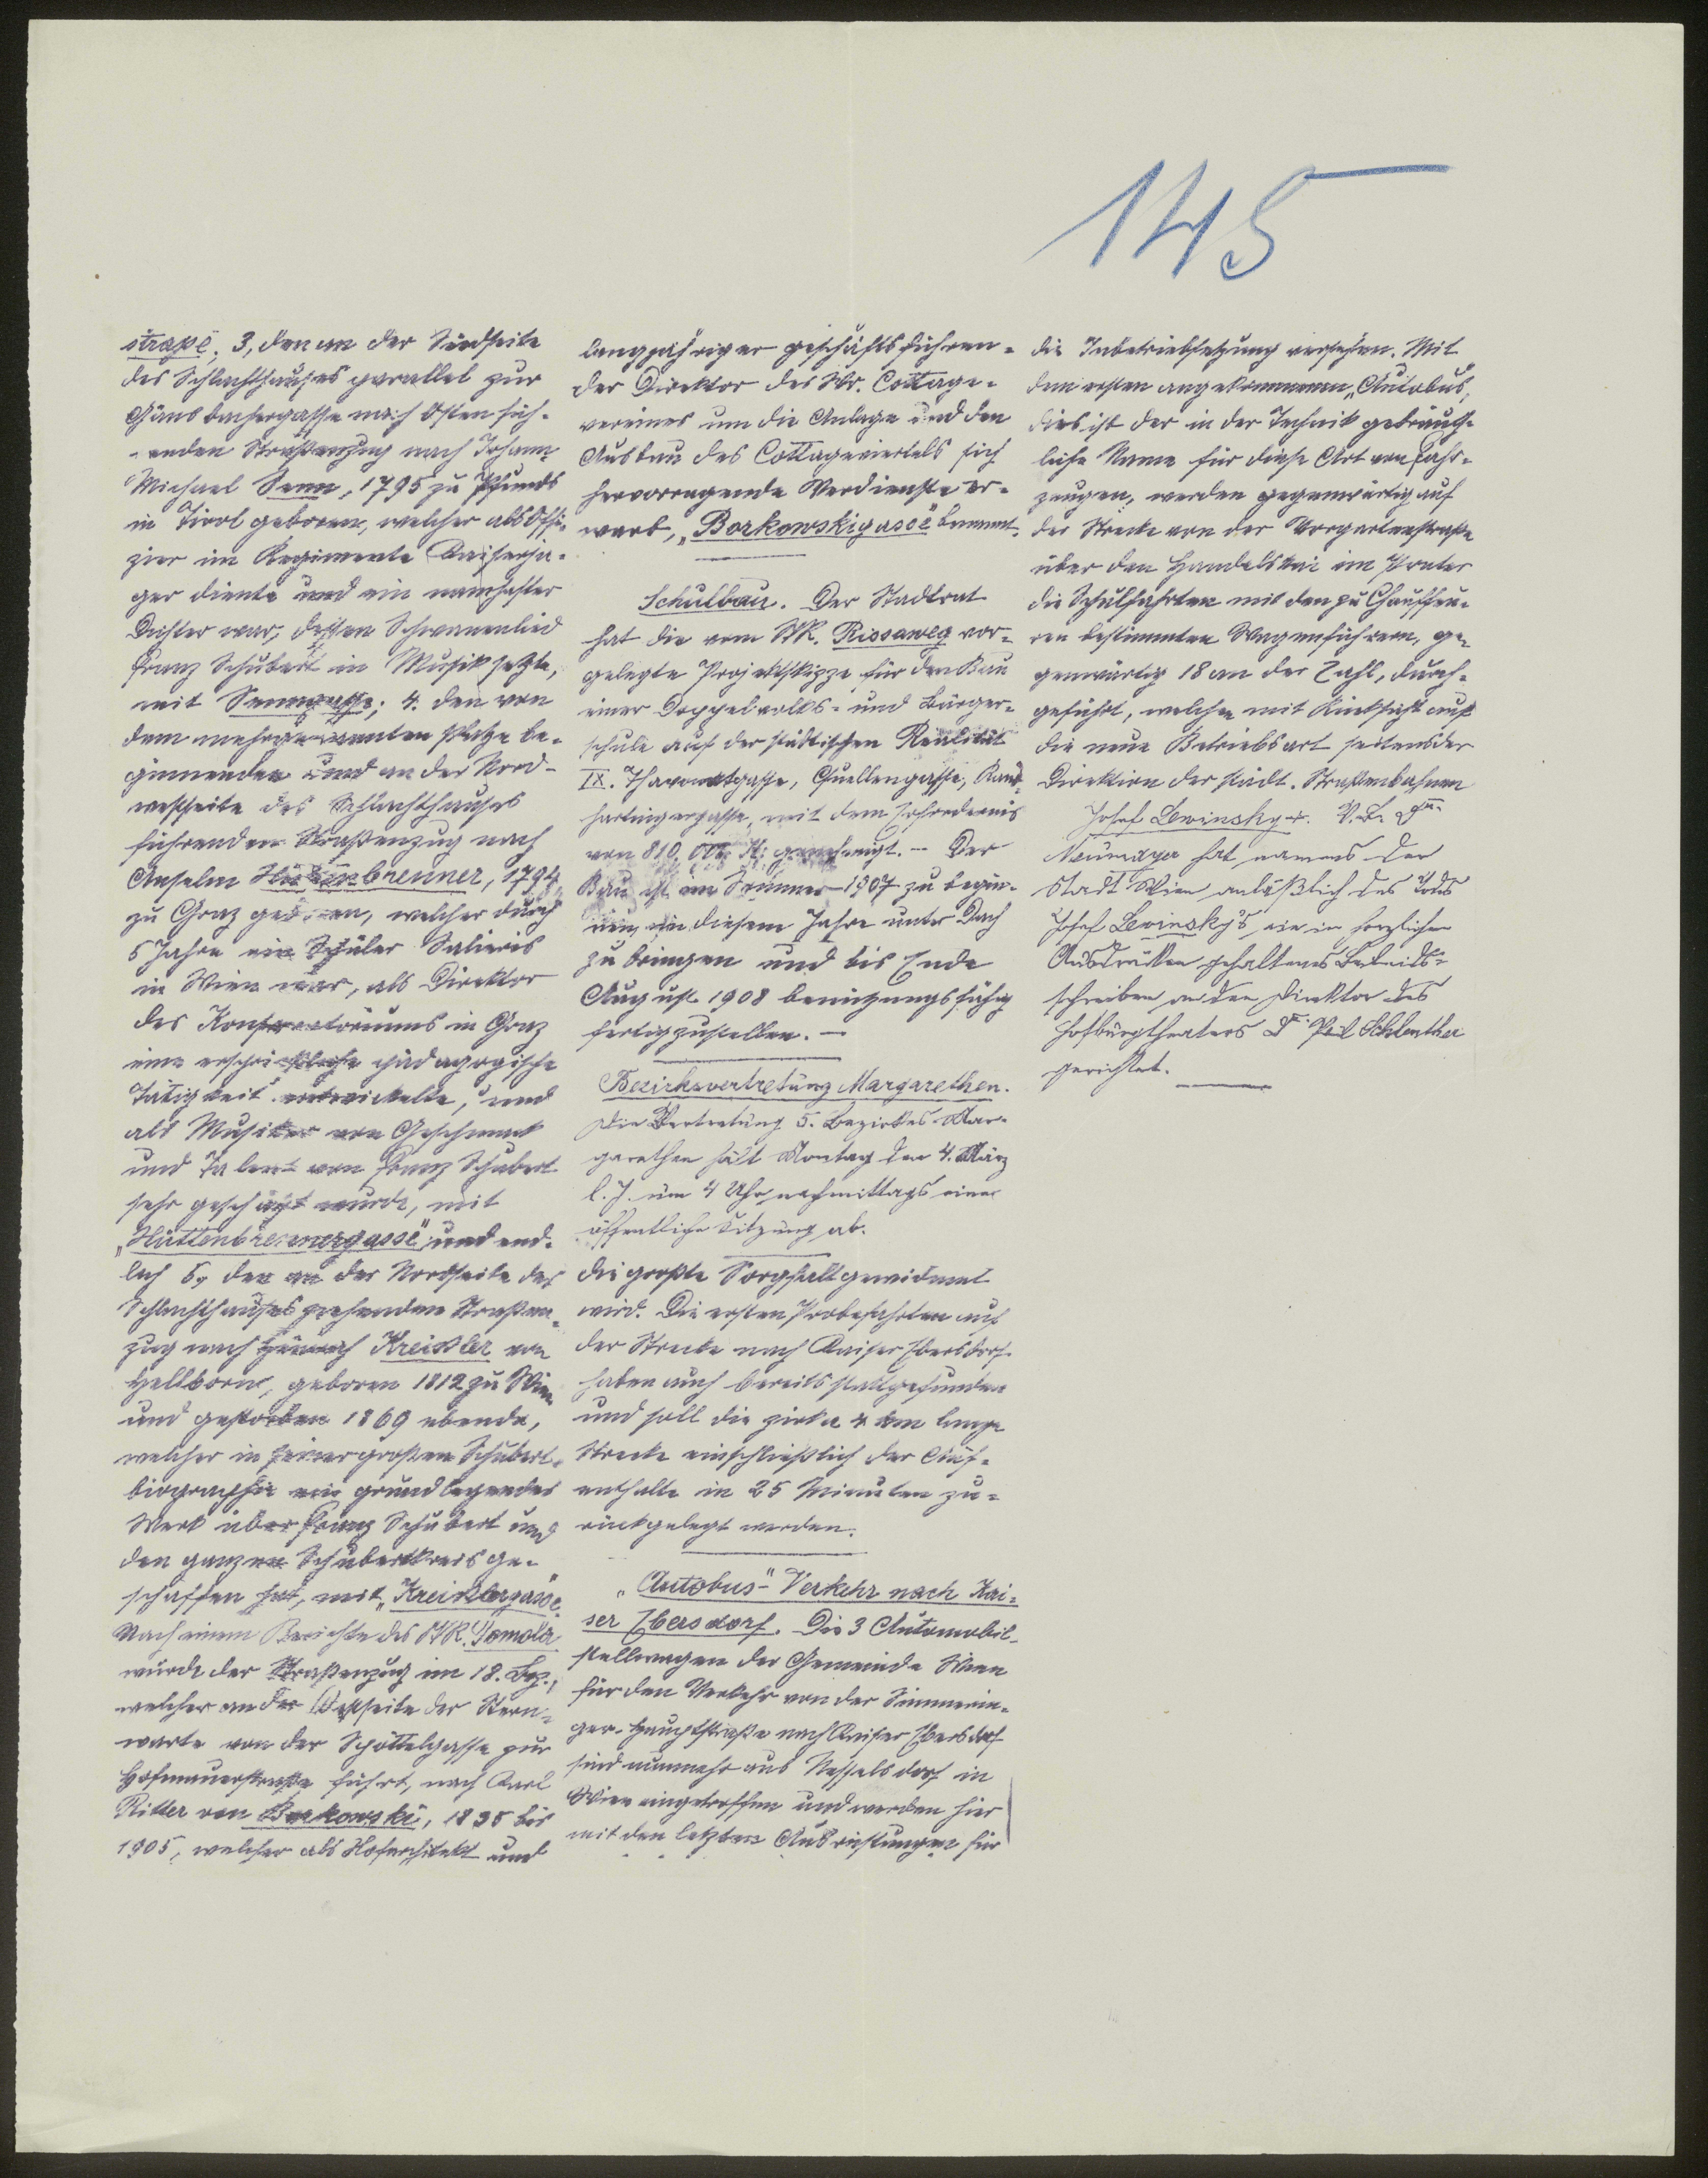 145
straße, 3, den an der Südseite
des Schlachthauses parallel zur
Gänsbachergasse nach Osten füh-
renden Straßenzug nach Johann
Michael Senn, 1795 zu Pfunds
in Tirol geboren, welcher als Offi-
zier im Regimente Kaiserjä-
ger diente und ein namhafter
Dichter war, dessen Schwanenlied
Franz Schubert in Musik setzte,
mit Senngasse; 4. den von
dem mehrgenannten Platze be-
ginnenden und an der Nord-
westseite des Schlachthauses
führenden Straßenzug nach
Anselm Hüttenbrenner, 1794
zu Graz geboren, welcher durch
5 Jahre ein Schüler Salieris
in Wien war, als Direktor
des Konservatoriums in Graz
eine ersprießliche pädagogische
Tätigkeit entwickelte, und
als Musiker von Geschmack
und Talent von Franz Schubert
sehr geschätzt wurde, mit
„Hüttenbrennergasse" und end-
lich 5, den an der Nordseite des
Schlachthauses ziehenden Straßen-
zug nach Heinrich Kreißler von
Hellborn, geboren 1812 zu Wien
und gestorben 1869 ebenda,
welcher in seiner großen Schubert-
biographie ein grundlegendes
Werk über Franz Schubert und
den ganzen Schubertkreis ge-
schaffen hat, mit „Kreißlergasse".
Nach einem Berichte des StR. Tomola
wurde der Straßenzug im 18. Bez.,
welcher an der Westseite der Stern-
warte von der Schöttelgasse zur
Hofmauerstraße führt, nach Karl
Ritter von Borkowski, 1835 bis
1905, welcher als Hofarchitekt und
langjähriger geschäftsführen-
der Direktor des Wr. Cottage-
vereines um die Anlage und den
Ausbau des Cottageviertels sich
hervorragende Verdienste er-
warb, „Borkowskigasse" benannt.
Schulbau. Der Stadtrat
hat die vom StR. Rissaweg vor-
gelegte Projektskizze für den Bau
einer Doppelvolks- und Bürger-
schule auf der städtischen Realität
IX. Thavonatgasse, Quellengasse, Rand-
hartingergasse, mit dem Erfordernis
von 810.000 K genehmigt. - Der
Bau ist im Sommer 1907 zu begin-
nen, in diesem Jahre unter Dach
zu bringen und bis Ende
August 1908 benützungsfähig
fertigzustellen. -
Bezirksvertretung Margarethen.
Die Vertretung 5. Bezirkes Mar-
garethen hält Montag den 4. März
l. J. um 4 Uhr nachmittags eine
öffentliche Sitzung ab.
die größte Sorgfalt gewidmet
wird. Die ersten Probefahrten auf
der Strecke nach Kaiser Ebersdorf
haben auch bereits stattgefunden
und soll die zirka 4 km lange
Strecke einschließlich der Auf-
enthalte in 25 Minuten zu-
rückgelegt werden.
„Autobus-" Verkehr nach Kai-
ser Ebersdorf. Die 3 Automobil-
stellwagen der Gemeinde Wien
für den Verkehr von der Simmerin-
ger-Hauptstraße nach Kaiser Ebersdorf
sind nunmehr aus Nesselsdorf in
Wien eingetroffen und werden hier
mit den letzten Ausrüstungen für
die Inbetriebsetzung versehen. Mit
dem ersten angekommenen „Autobus",
dies ist der in der Technik gebräuch-
liche Name für diese Art von Fahr-
zeugen, werden gegenwärtig auf
der Strecke von der Vorgartenstraße
über den Handelskai im Prater
die Schulfahrten mit den zu Chauffeu-
ren bestimmten Wagenführern, ge-
genwärtig 18 an der Zahl, durch-
geführt, welchen mit Rücksicht auf
die neue Betriebsart seitens der
Direktion der städt. Straßenbahnen
Josef Lewinsky +. V. B. Dr.
Neumayer hat namens der
Stadt Wien anläßlich des Todes
Josef Lewinsky's ein in herzlichen
Ausdrücken gehaltenes Beileids-
schreiben an den Direktor des
Hofburgtheaters Dr. Paul Schlenther
gerichtet.